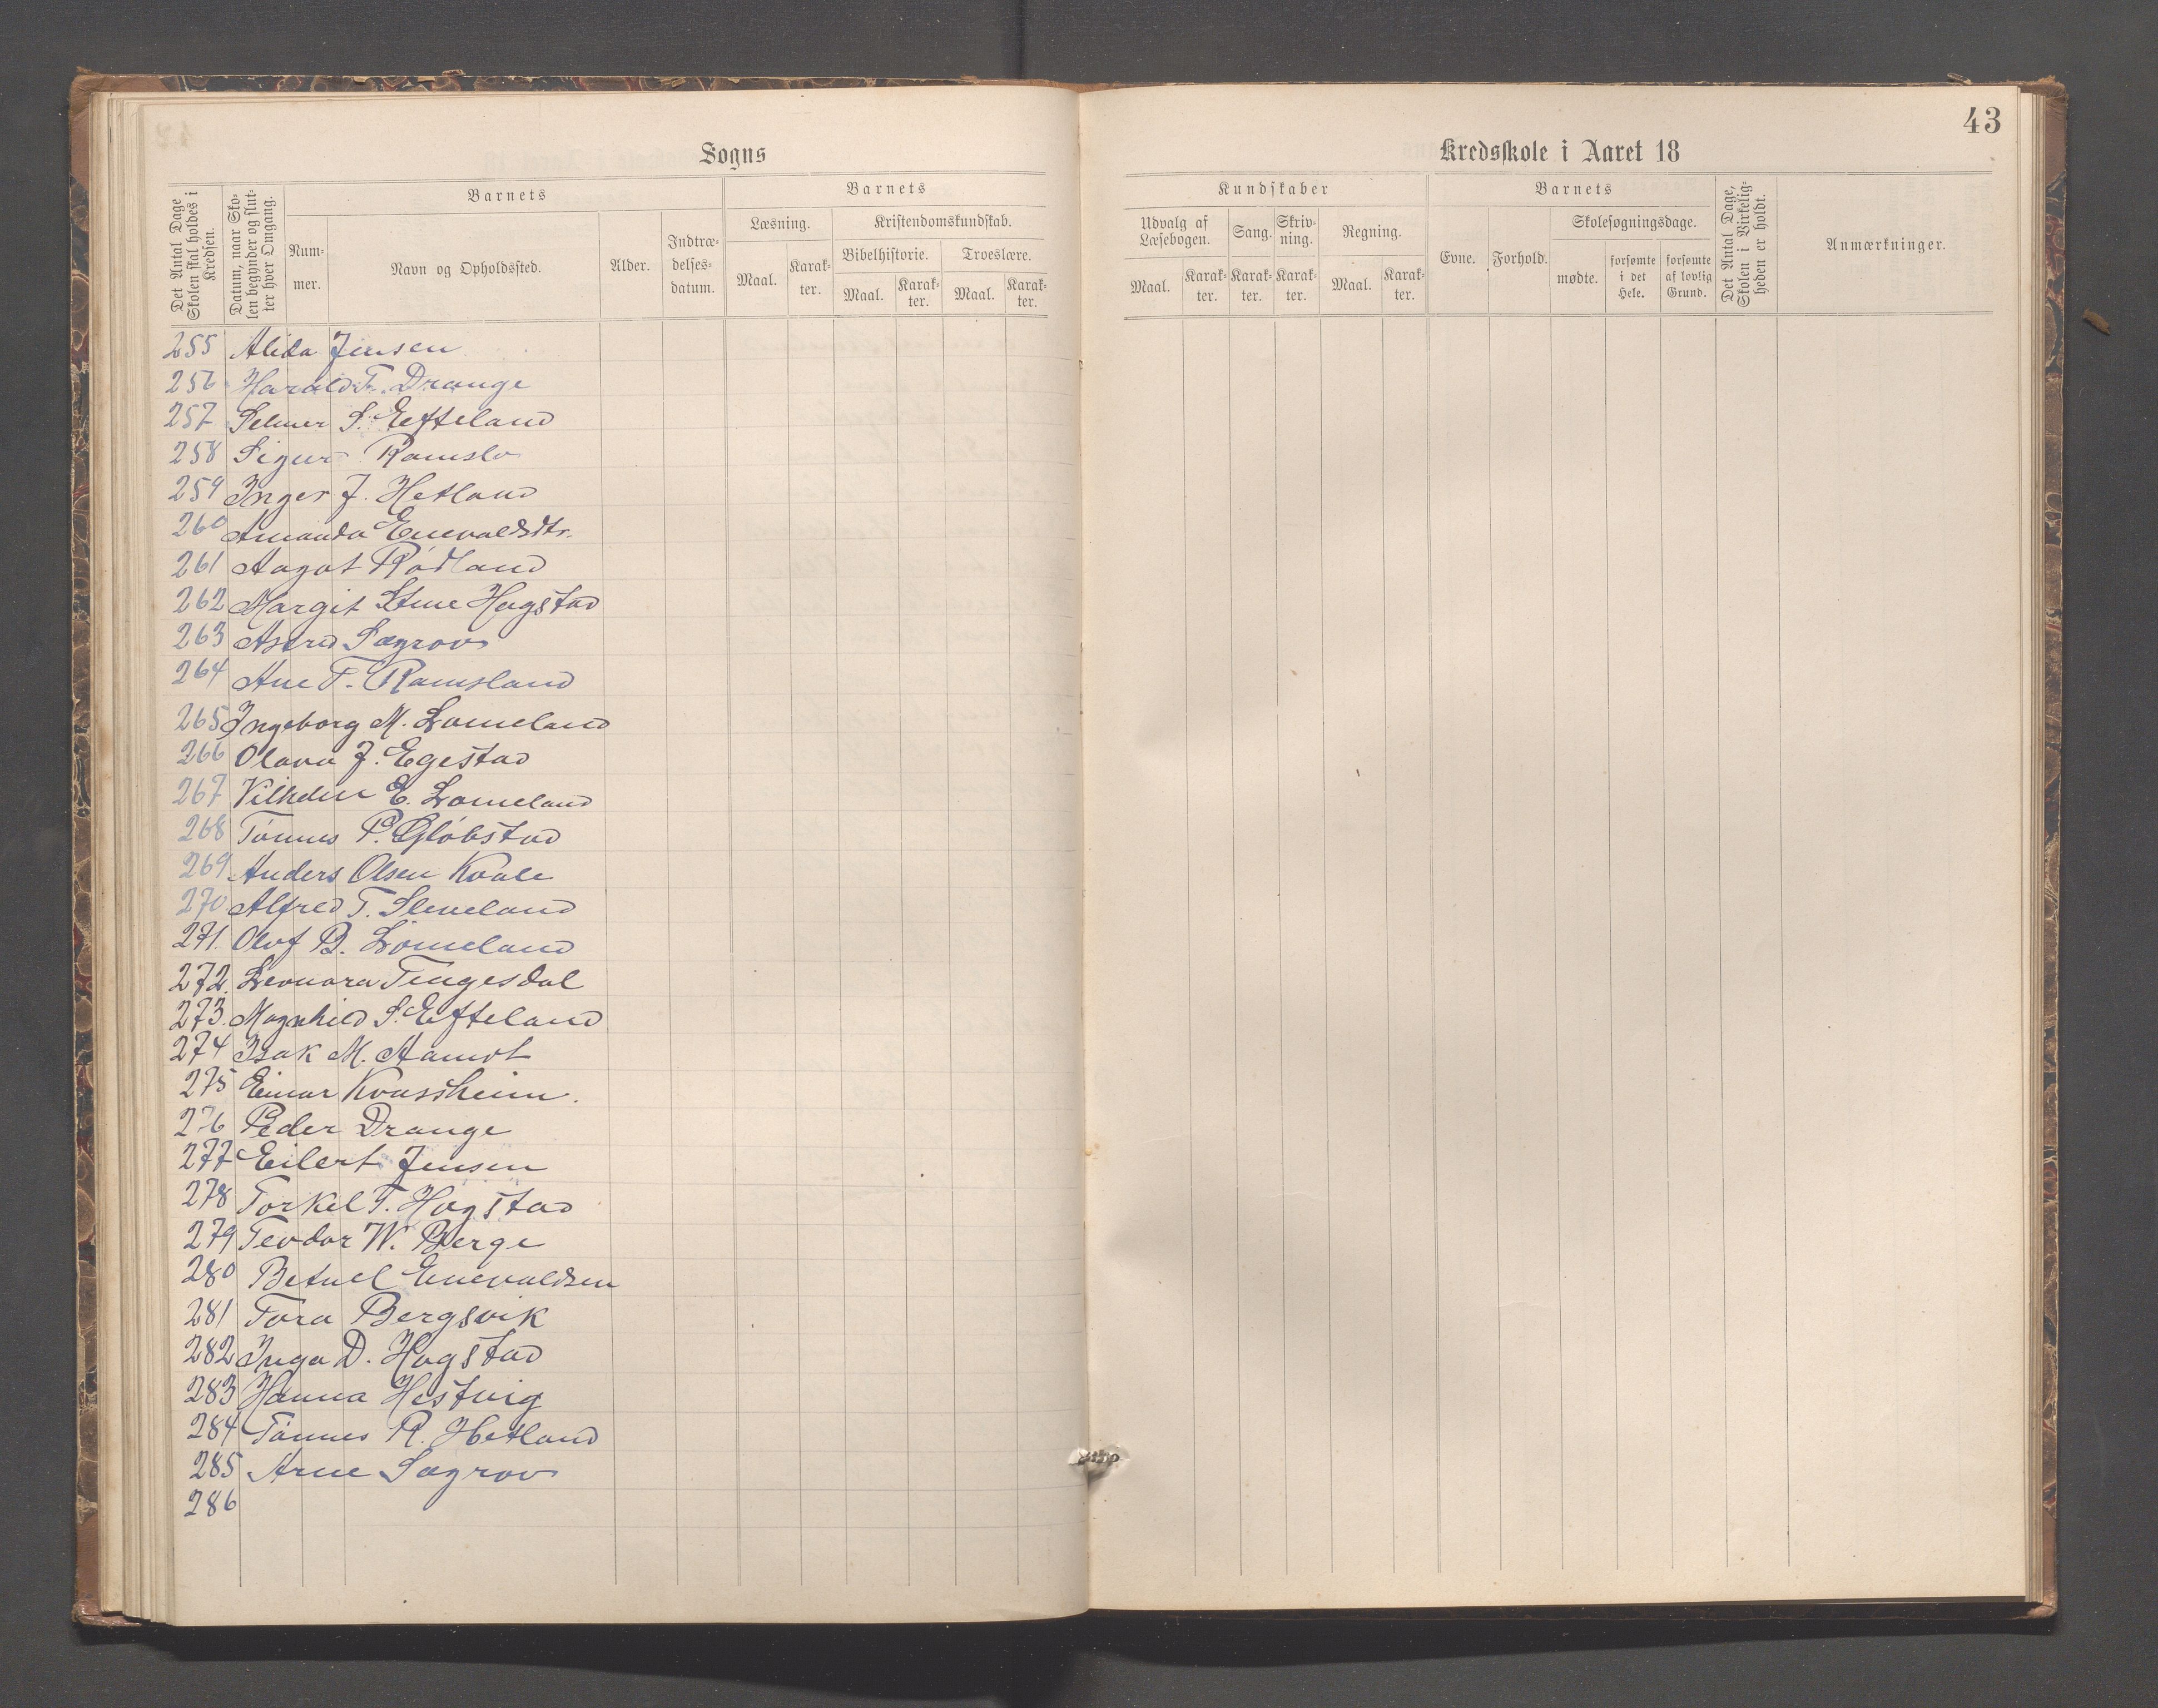 43
Sogns
Kredsskole i Aaret 18
Det Antal Dage Skolen skal holdes i Kredsen.
Datum, naar Skolen begynder og slutter hver Omgang.
Barnets
Nummer.
Navn og Opholdssted.
Alder.
Indtrædelsesdatum.
Barnets
Læsning.
Maal.
Karakter.
Kristendomskundskab.
Bibelhistorie.
Maal.
Karakter.
Troeslære.
Maal.
Karakter.
Kundskaber
Udvalg af Læsebogen.
Maal.
Karakter.
Sang.
Karakter.
Skrivning.
Karakter.
Regning.
Maal.
Karakter.
Barnets
Evne.
Forhold.
Skolesøgningsdage.
mødte.
forsømte i det Hele.
forsømte af lovlig Grund.
Det Antal Dage, Skolen i Virkeligheden er holdt.
Anmærkninger.
255 Alida Jensen
256 Harald T. Drange
257 Selmer S. Eefteland
258 Sigurd Ramslo
259 Inger J. Hetland
260 Amanda Enevaldsdtr.
261 Aagot Rødland
262 Margit Stine Hogstad
263 Astrid Sægrov
264 Ane T. Ramsland
265 Ingeborg M. Lomeland
266 Olava J. Egestad
267 Vilhelm E. Lomeland
268 Tønnes P. Gløbstad
269 Anders Olsen Kvale
270 Alfred T. Sleveland
271. Olof B. Lomeland
272. Leonora Tingesdal
273. Magnhild S. Eefteland
274 Isak M. Aamot
275 Einar Kvassheim.
276 Peder Drange
277 Eilert Jensen
278 Torkel T. Hogstad
279 Teodor W. Berge
280 Betuel Enevaldsen
281 Tora Bergsvik
282 Inga D. Hogstad
283 Hanna Hestvig
284 Tønnes R. Hetland
285 Arne Sægrov
286